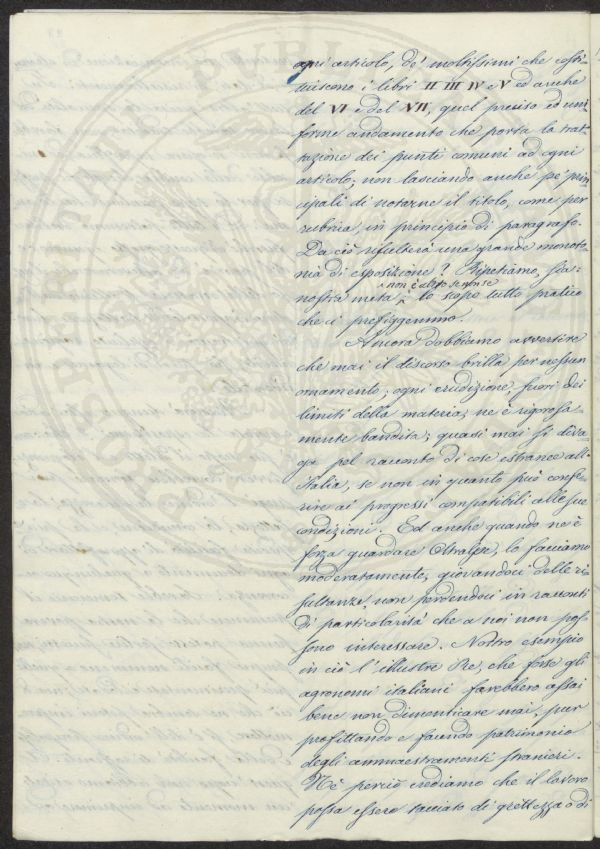 ogni articolo, de' moltissimi che costi-
tuiscono i libri II III IV e V ed anche
del VI e del VII, quel preciso ed uni-
forme andamento che porta la trat-
tazione dei punti comuni ad ogni
articolo; non lasciando anche pe' prin-
cipali di notarne il titolo, come per
rubrica, in principio di paragrafo.
Da ciò risulterà una grande monoto-
nia di esposizione? Ripetiamo, sia:
non è altro se non se
nostra meta è lo scopo tutto pratico
che ci prefiggemmo.
Ancora dobbiamo avvertire
che mai il discorso brilla per nessun
ornamento; ogni erudizione fuori dei
limiti della materia, ne è rigorosa-
mente bandita; quasi mai si diva-
ga pel racconto di cose estranee all'
Italia, se non in quanto può confe-
rire ai progressi compatibili alle sue
condizioni. Ed anche quando ne è
forza guardare Oltralpe, lo facciamo
moderatamente, giovandoci delle ri-
sultanze, non perdendoci in racconti
di particolarità che a noi non pos-
sono interessare. Nostro esempio
in ciò l'illustre Re, che forse gli
agronomi italiani farebbero assai
bene non dimenticare mai, pur
profittando e facendo patrimonio
degli ammaestramenti stranieri.
Nè perciò crediamo che il lavoro
possa essere tacciato di grettezza o di